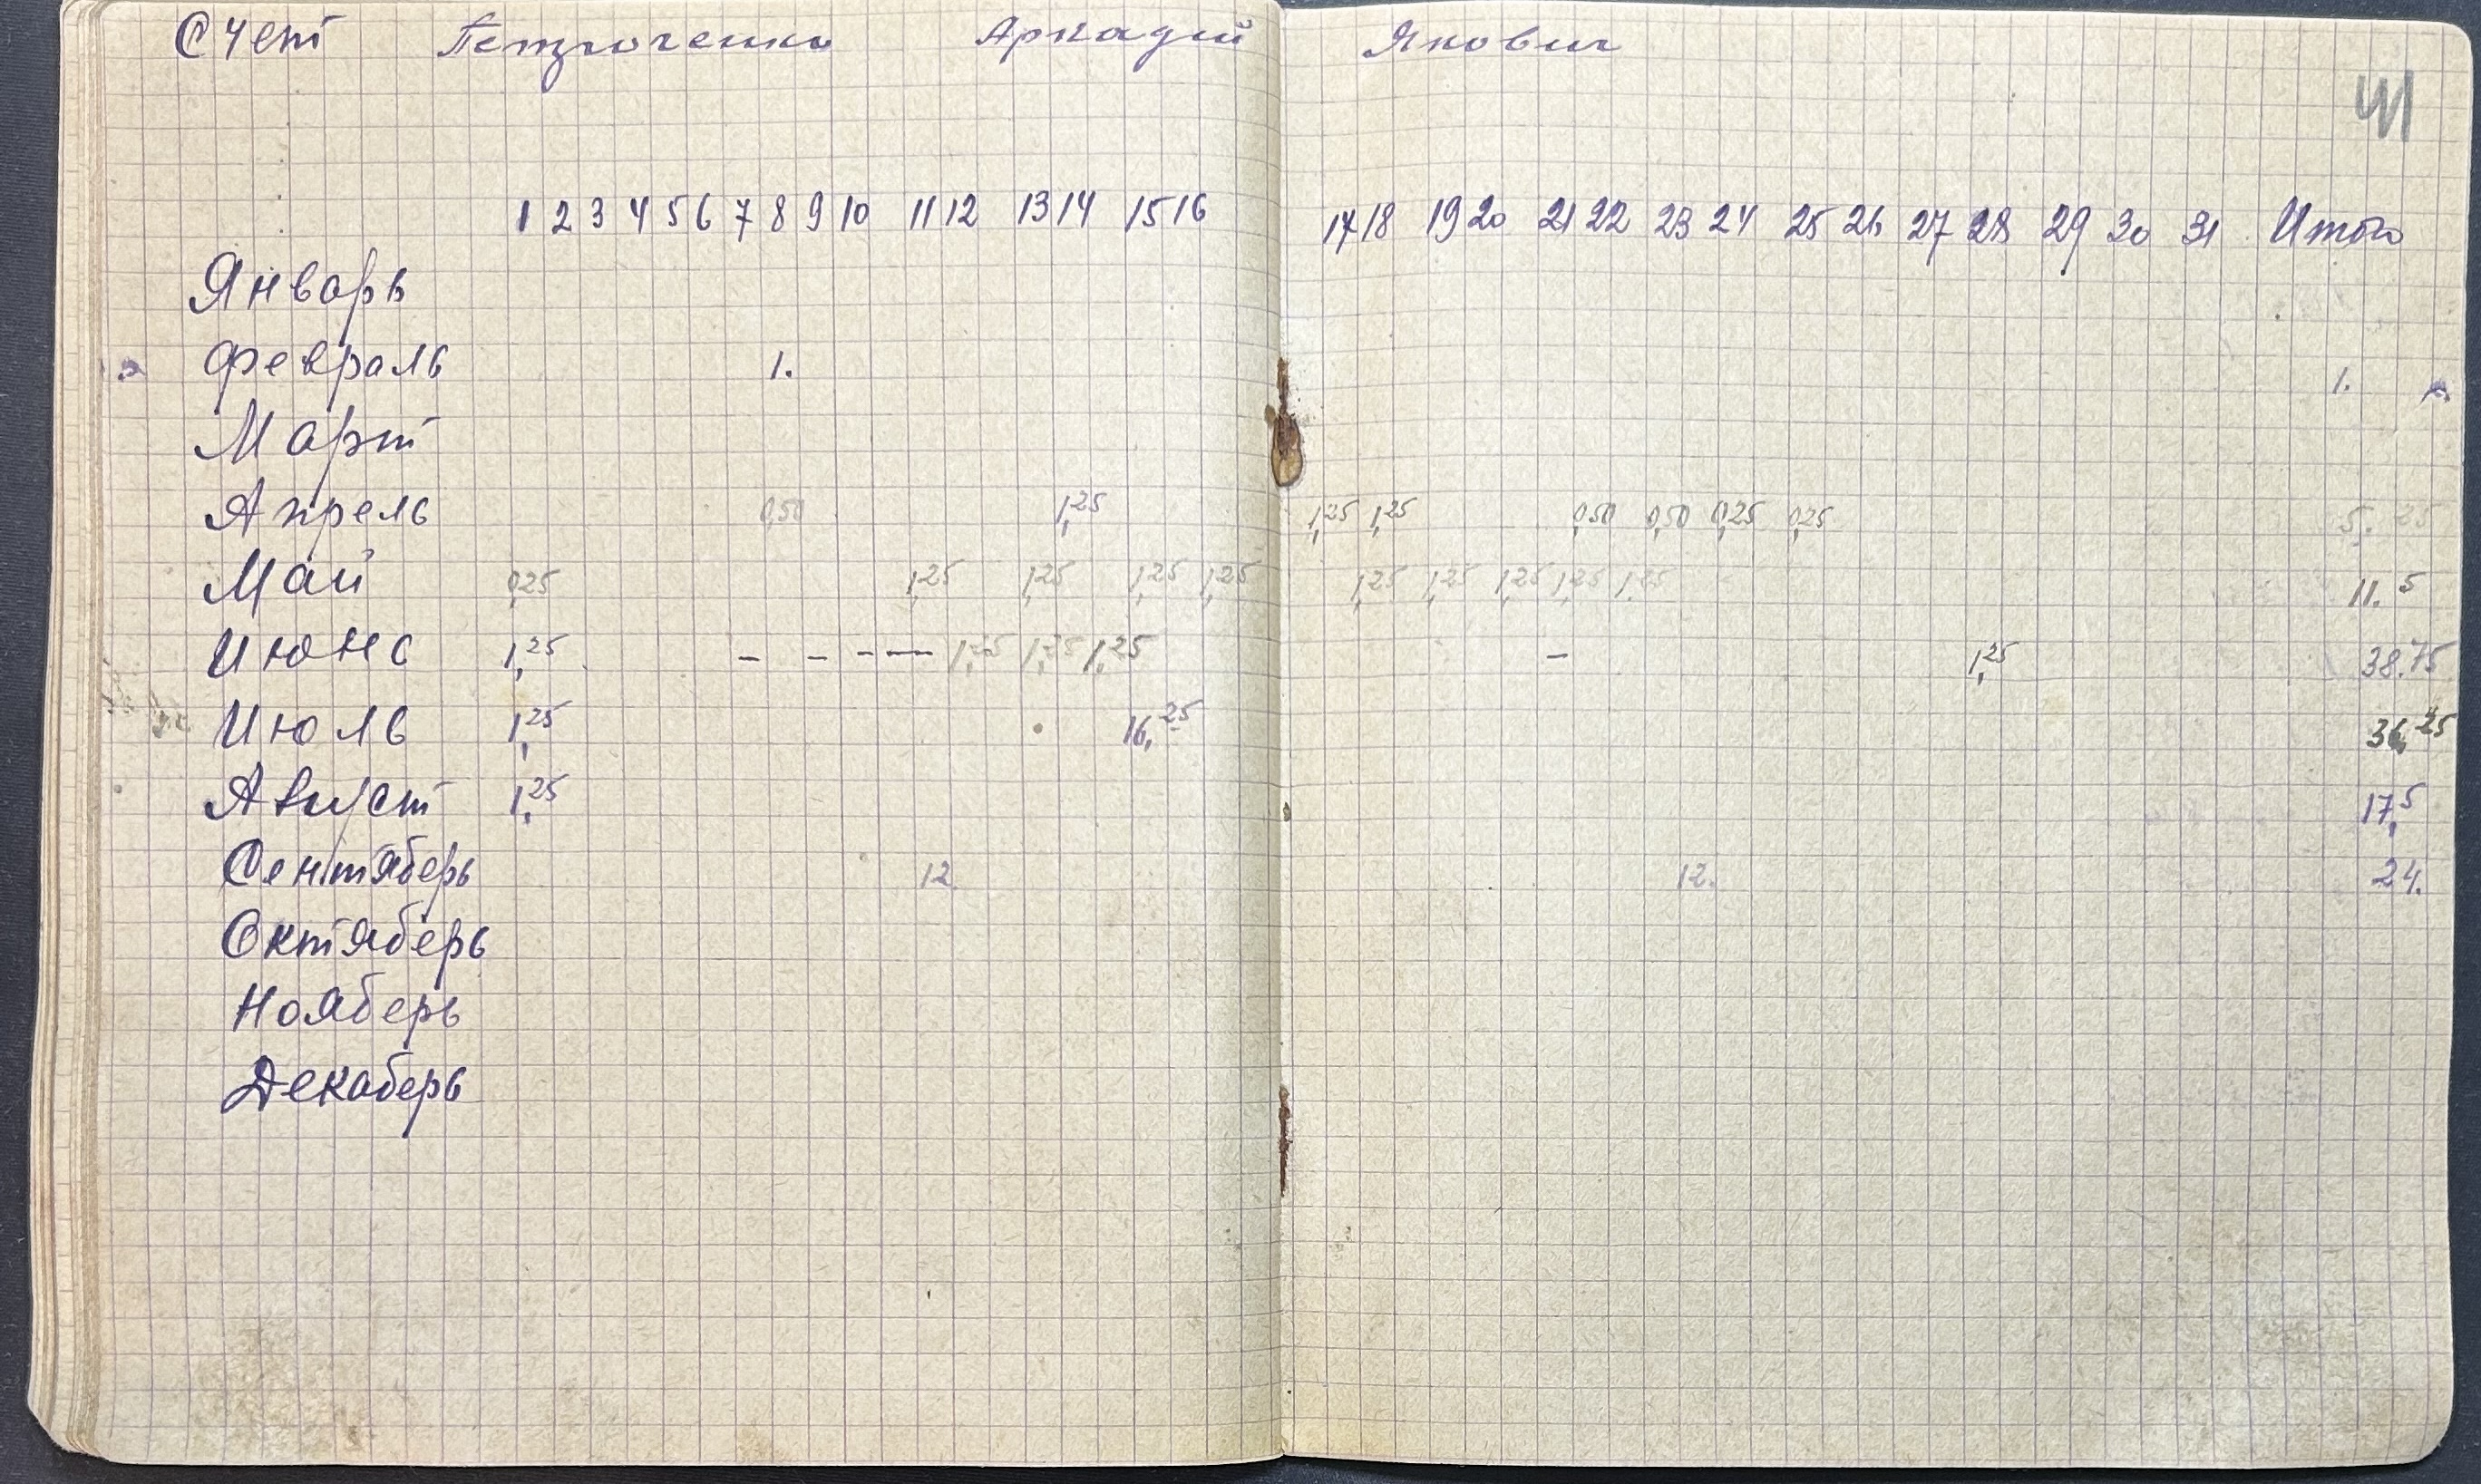 Счет Петрюченко Аркадий Якович
41
1 2 3 4 5 6 7 8 9 10 11 12 13 14 15 16 17 18 19 20 21 22 23 24 25 26 27 28 29 30 31 Итого
Январь
Февраль 1. 1.
Март
Апрель 0,50 1,25 1,25 1,25 0,50 0,50 0,25 0,25 5. 25
Май 0,25 1,25 1,25 1,25 1,25 1,25 1,25 1,25 1,25 1,25 11. 5
Июнь 1,25 - - - — 1,25 1,25 1,25 - 1,25 38.75
Июль 1,25 16,25 36,25
Август 1,25 17,5
Сентяберь 12. 12. 24.
Октяберь
Нояберь
Декаберь